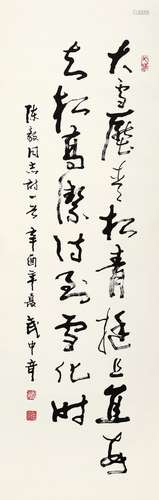 大雪壓青松青挺且直要
知松高潔待到雪化時
陳毅同志詩一首 辛酉年夏 武中奇